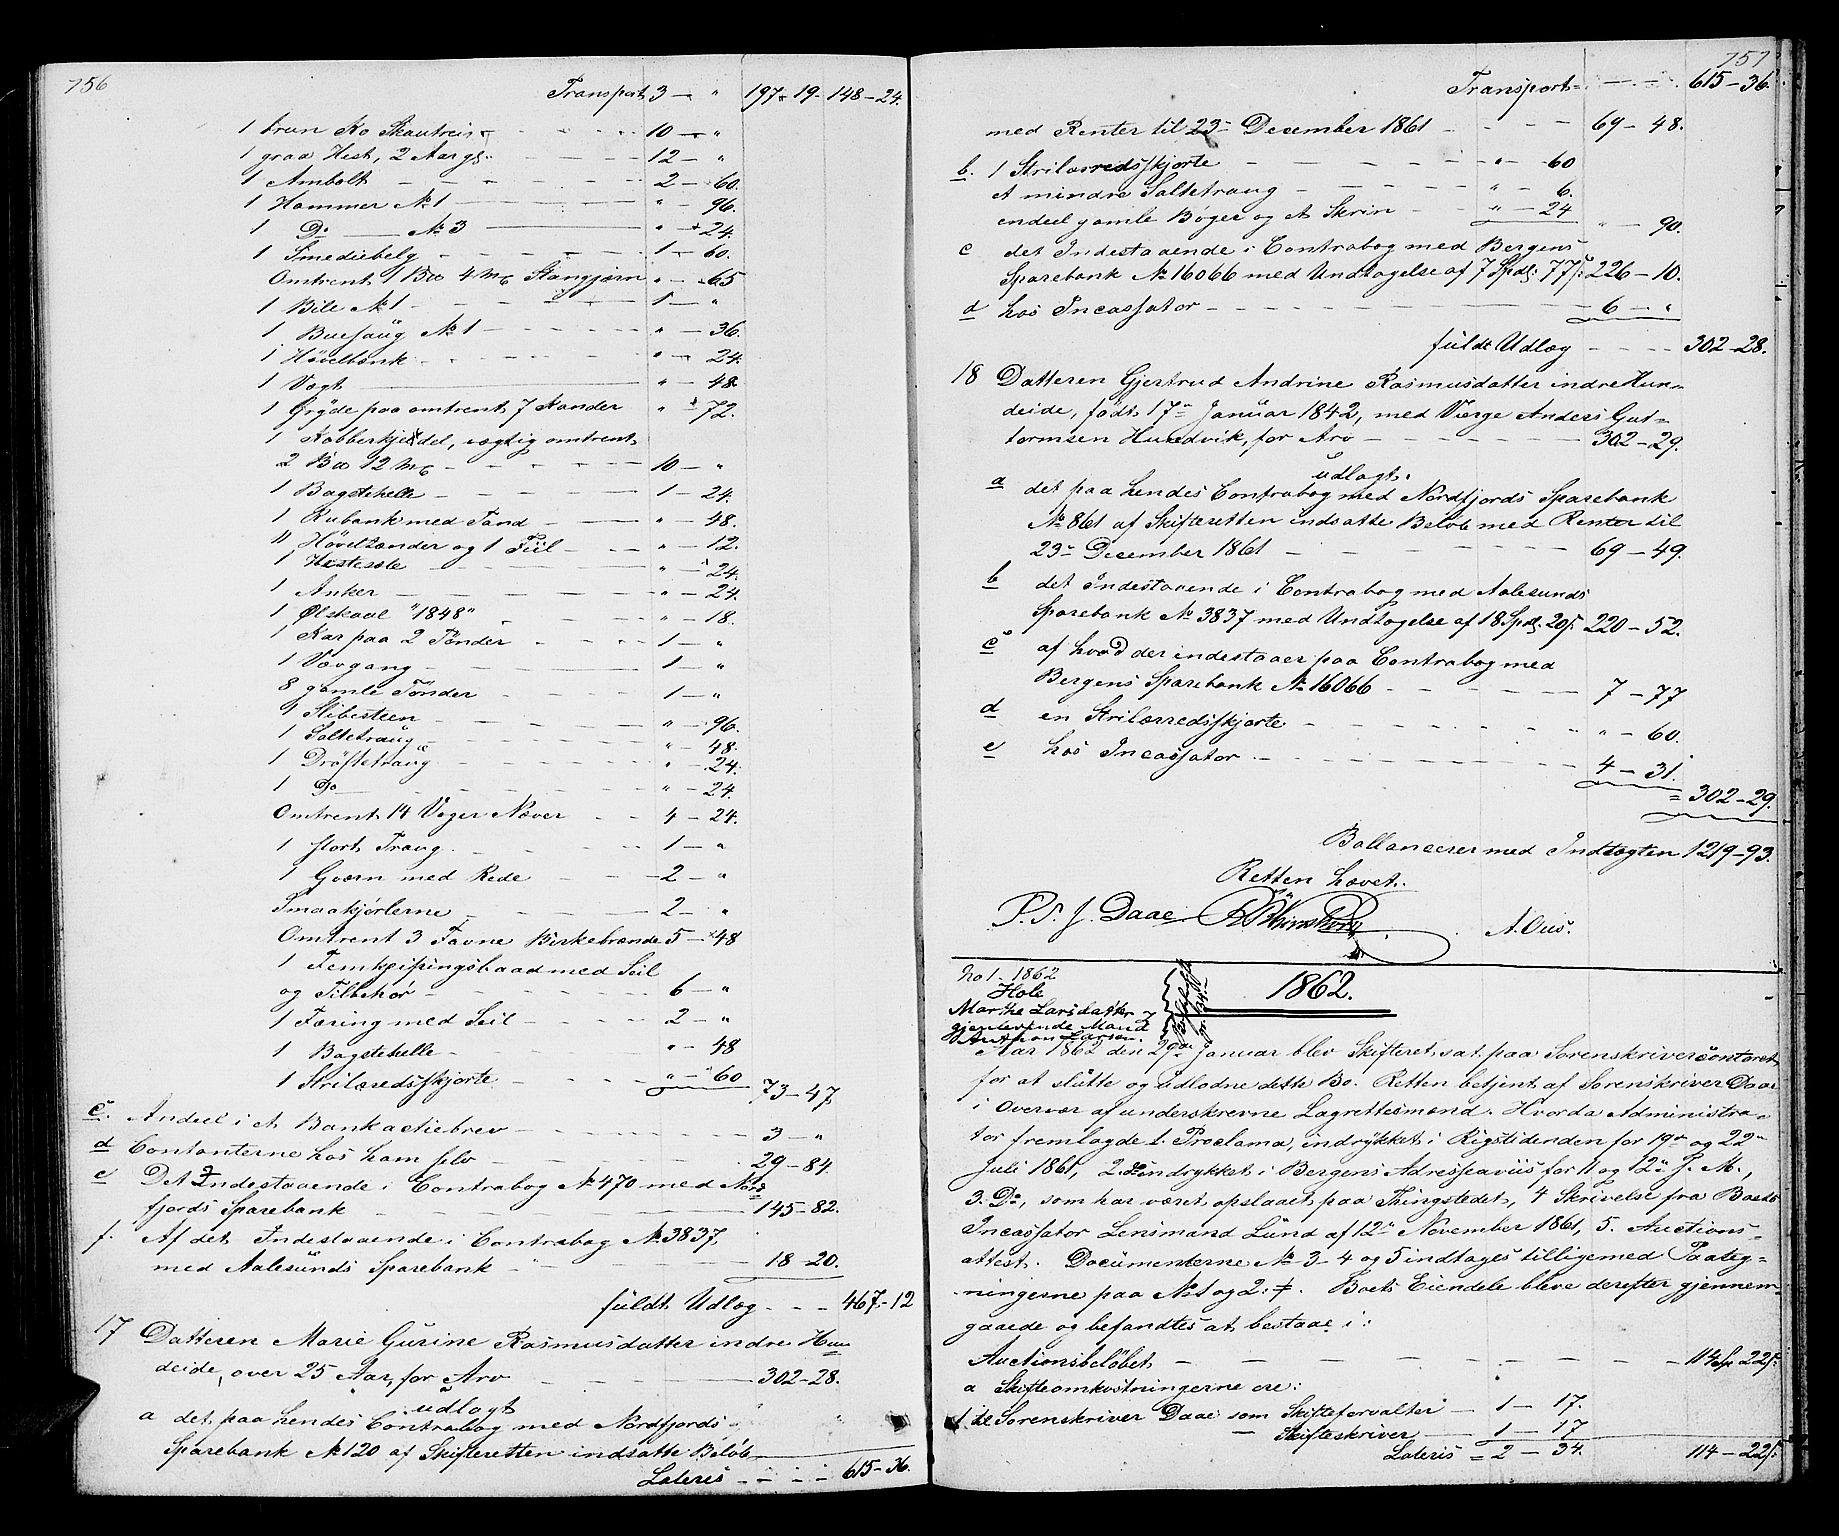 756
Transport 3 — " 197 - 19 - 148 - 24.
1 brun Ko Skautreis — 10 — "
1 graa Hest, 2 Aar gl. — 12 — "
1 Ambolt — 2 — 60.
1 Hammer No 1 — " — 96.
1 Do — No 3 — " — 24.
1 Smediebelg — 1 — 60.
Omtrent 1 Bp 4 mk Stangjern " — 65
1 Bile No 1 — 1 — "
1 Buesaug No 1 — " — 36.
1 Høvelbænk — " — 24.
1 Vægt — " — 48.
1 Gryde paa omtrent 7 Kander " — 72.
1 Kobberkjedel, vægtig omtrent
2 Bp 12 mk — 10 — "
1 Bagstehelle — 1 — 24.
1 Rubank med Tand — " — 48.
11 Høveltænder og 1 Fiil — " — 12.
1 Hestesele — " — 24.
1 Anker — " — 24.
1 Ølskaal "1848" — " — 18.
1 Kar paa 2 Tønder — 1 — "
1 Vævgang — 1 — "
8 gamle Tønder — 1 — "
1 Slibesteen — " — 96.
1 Saltetraug — " — 48.
1 Drøftetraug — " — 24.
1 Do — " — 24.
Omtrent 14 Voger Næver — 4 — 24.
1 stort Traug — 1 — "
1 Qværn med Rede — 2 — "
Smaakjørlerne — 2 — "
Omtrent 3 Favne Birkebrænde 5 — 48
1 Femkeipingsbaad med Seil
og Tilbehør — 6 — "
1 Færing med Seil — 2 — "
1 Bagstehelle — " — 48
1 Strilæredsskjorte — " — 60 73 — 47
c. Andeel i et Bankactiebrev — 3 — "
d Contanterne hos ham selv — 29 — 84.
e Det Indestaaende i Contrabog No 470 med Nord
fjords Sparebank — 145 — 82.
f. Af det Indestaaende i Contrabog No 3837
med Aalesunds Sparebank — 18 — 20.
fuldt Udlæg — 467 - 12
17 Datteren Marie Gurine Rasmusdatter indre Hun
deide, over 25 Aar, for Arv — 302 — 28.
udlagt
a det paa hendes Contrabog med Nordfjords
Sparebank No 120 af Skifteretten indsatte Beløb
Lateris — 615 - 36.
757
Transport — 615 - 36.
med Renter til 23de December 1861 — 69 — 48.
b. 1 Strilærredsskjorte — " — 60
et mindre Saltetraug — " — 6.
endeel gamle Bøger og et Skrin — " — 24 " — 90.
c det Indestaaende i Contrabog med Bergens
Sparebank No 16066 med Undtagelse af 7 Spdl. 77 s. 226 — 10.
d hos Incassator — 6 — "
fuldt Udlæg — 302 - 28.
18 Datteren Gjertrud Andrine Rasmusdatter indre Hun-
deide, født 17de Januar 1842, med Værge Anders Gut-
tormsen Hundvik, for Arv — 302 — 29.
udlagt.
a det paa hendes Contrabog med Nordfjords Sparebank
No 861 af Skifteretten indsatte Beløb med Renter til
23de December 1861 — 69 — 49.
b det Indestaaende i Contrabog med Aalesunds
Sparebank No 3837 med Undtagelse af 18 Spdl. 20 s. 220 — 52.
c af hvad der indestaaer paa Contrabog med
Bergens Sparebank No 16066 — 7 — 77
d en Strilærredsskjorte — " — 60.
e hos Incassator — 4 — 31.
= 302 - 29.
Ballancerer med Indtægten 1219 - 93.
Retten hævet.
P. S. J. Daae A. Ous.
No 1 - 1862
Hole
Marthe Larsdatter
gjenlevende Mand
Anthon Larsen.
1862.
Aar 1862 den 29de Januar blev Skifteret sat paa Sorenskrivercontoret
for at slutte og udlodne dette Bo. Retten betjent af Sorenskriver Daae
i Overvær af underskrevne Lagrettesmænd. Hvorda Administra-
tor fremlagde 1. Proclama, indrykket i Rigstidenden for 19de og 22de
Juli 1861, 2. Do indrykket i Bergens Adresseaviis for 11 og 12te J. M.,
3. Do, som har været opslaaet paa Thingstedet, 4 Skrivelse fra Boets
Incassator Lensmand Lund af 12te November 1861, 5. Auctions-
attest. Documenterne No 3 - 4 og 5 indtages tilligemed Paateg-
ningerne paa No 1 og 2: Boets Eiendele bleve derefter gjennem-
gaaede og befandtes at bestaae i:
Auctionsbeløbet — 114 Sp 22 s.
a Skifteomkostningerne ere:
1 til Sorenskriver Daae som Skifteforvalter — 1 — 17.
— Skifteskriver — 1 — 17
Lateris = 2 — 34. 114 - 22 s.